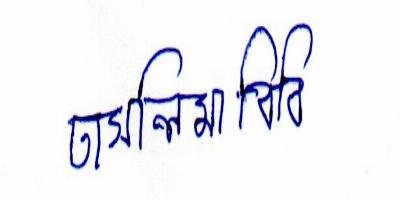 তাসলিমা বিবি